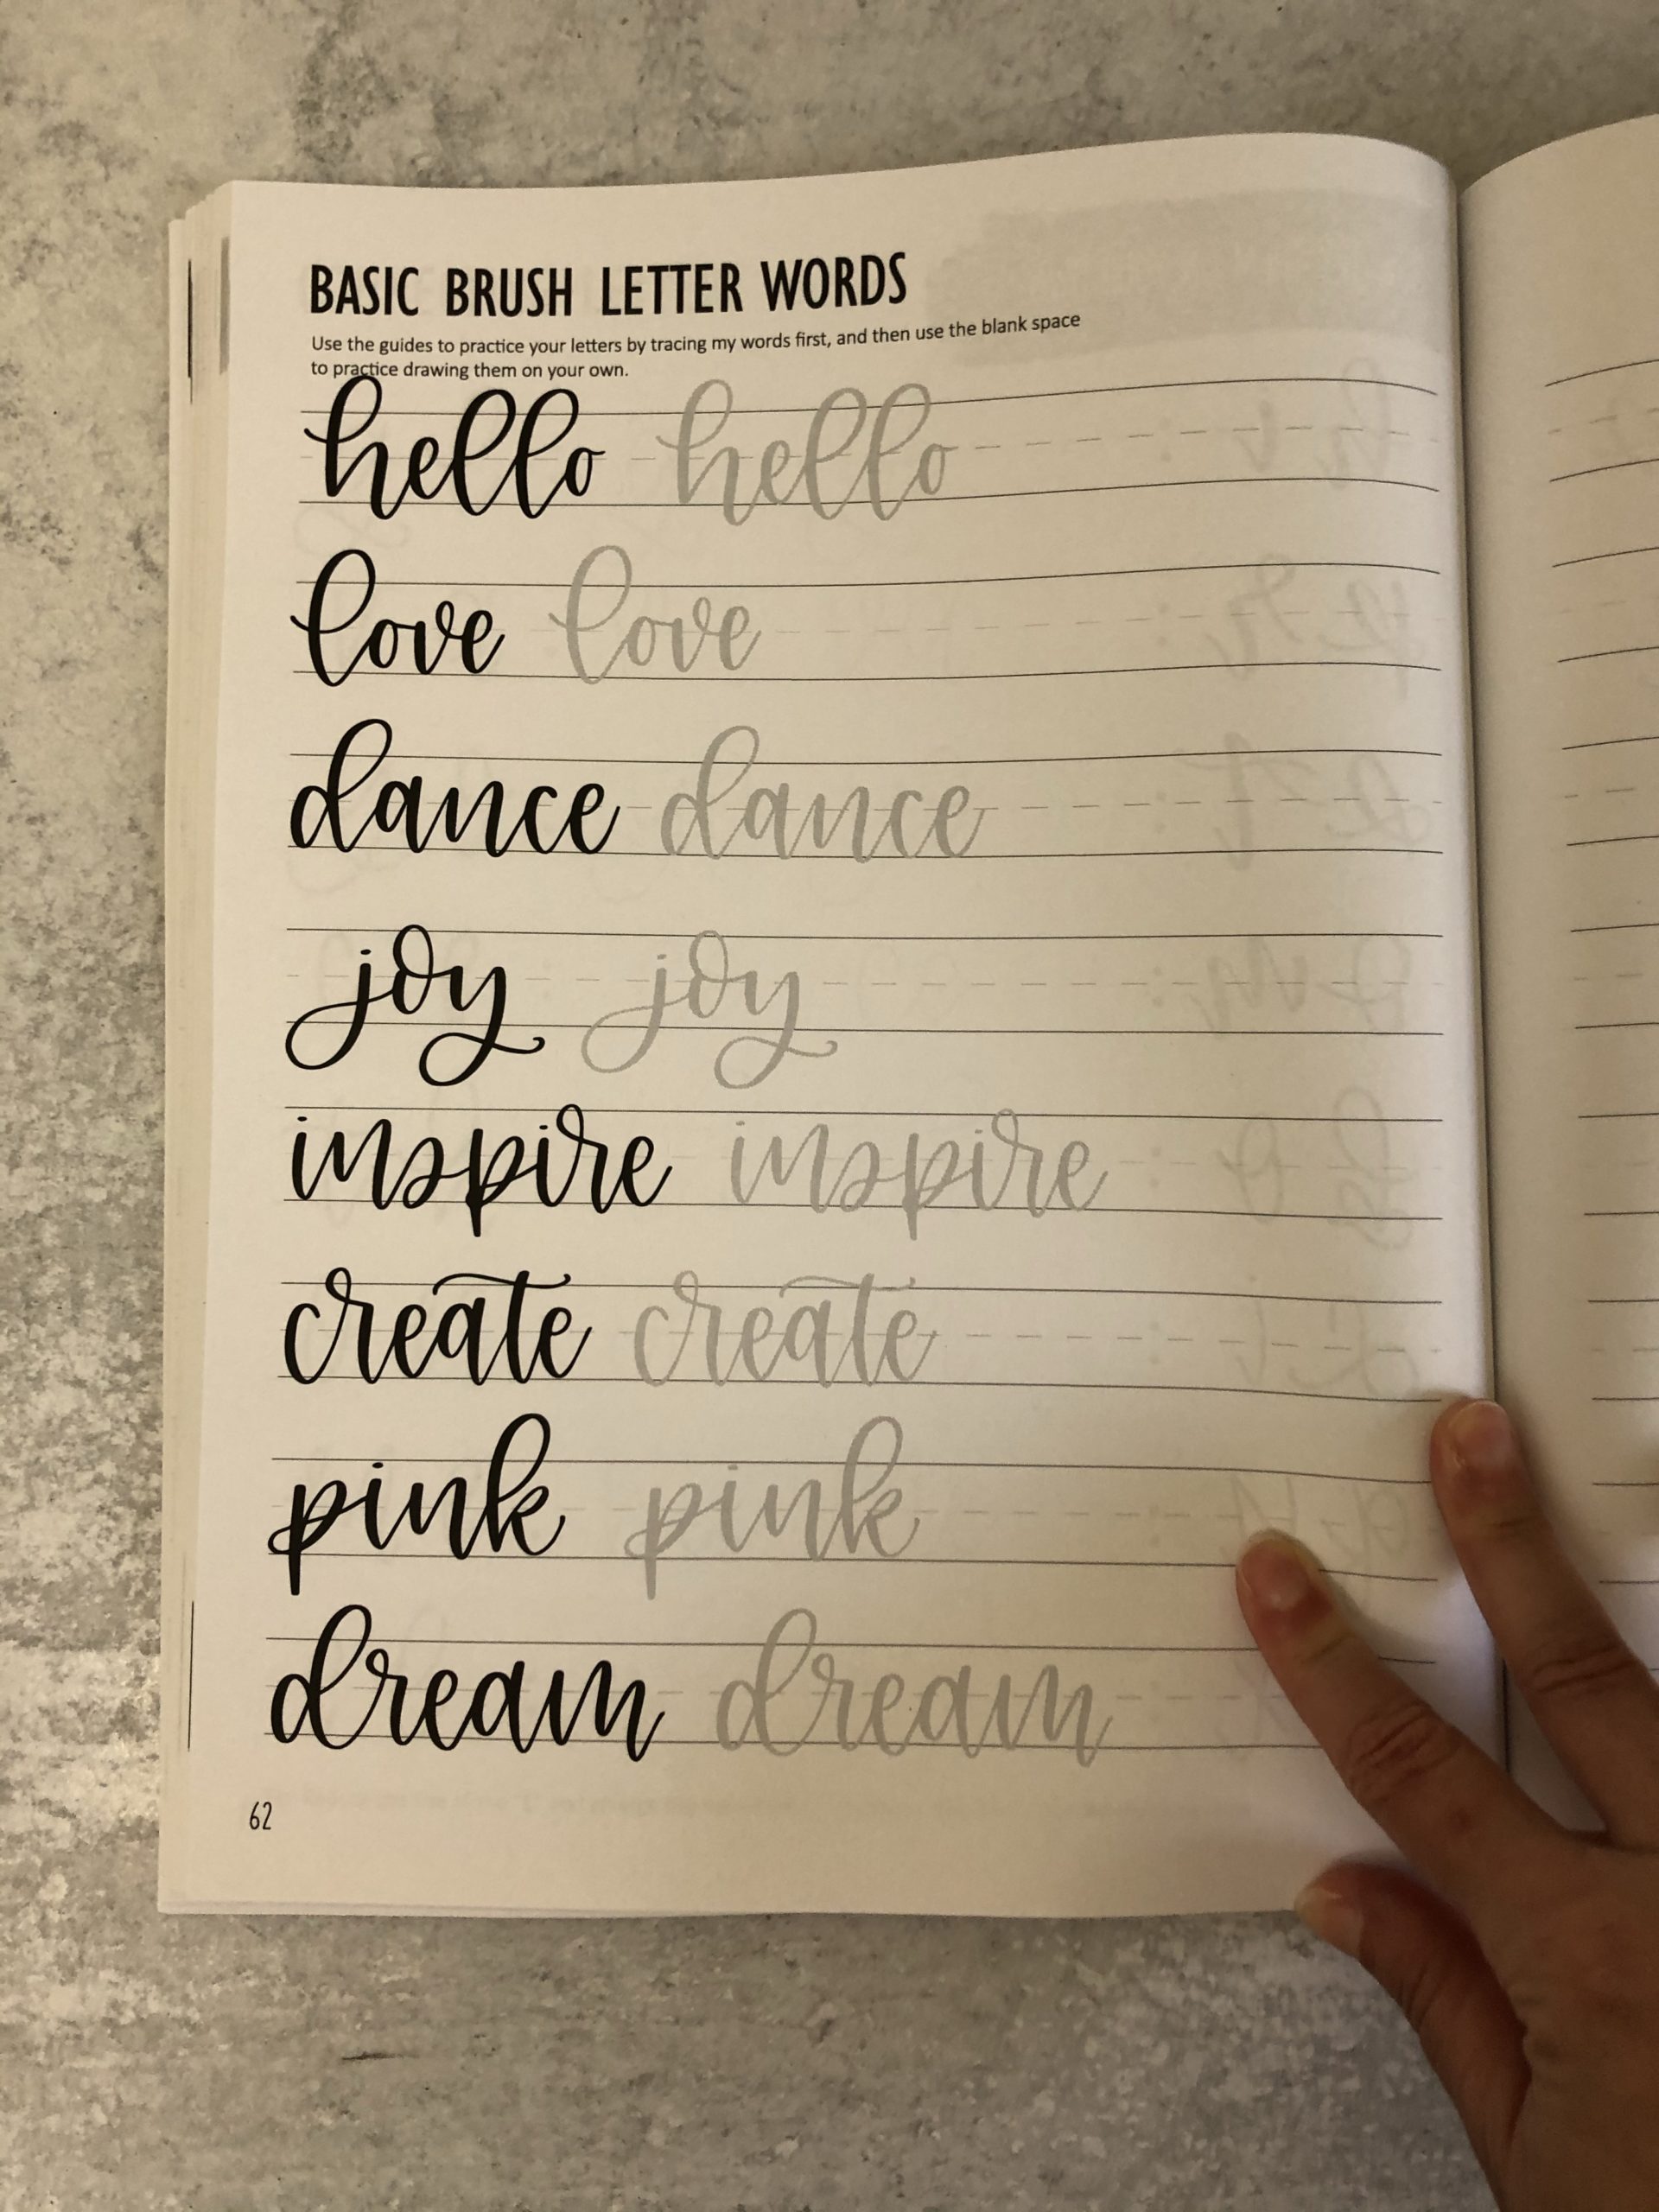 BASIC BRUSH LETTER WORDS
Use the guides to practice your letters by tracing my words first, and then use the blank space
to practice drawing them on your own.
hello hello
love love
dance dance
joy joy
inspire inspire
create create
pink pink
dream dream
62